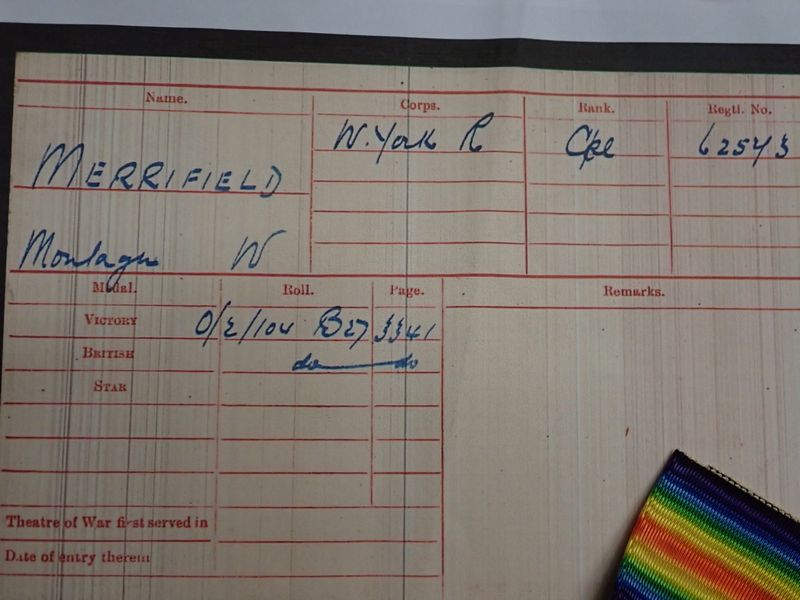 Name. Corps. Rank. Regtl. No.
MERRIFIELD W. York R Cpl 62543
Montagu W
Medal. Roll. Page. Remarks.
VICTORY O/2/104 B27 3341
BRITISH do do
STAR
Theatre of War first served in
Date of entry therein